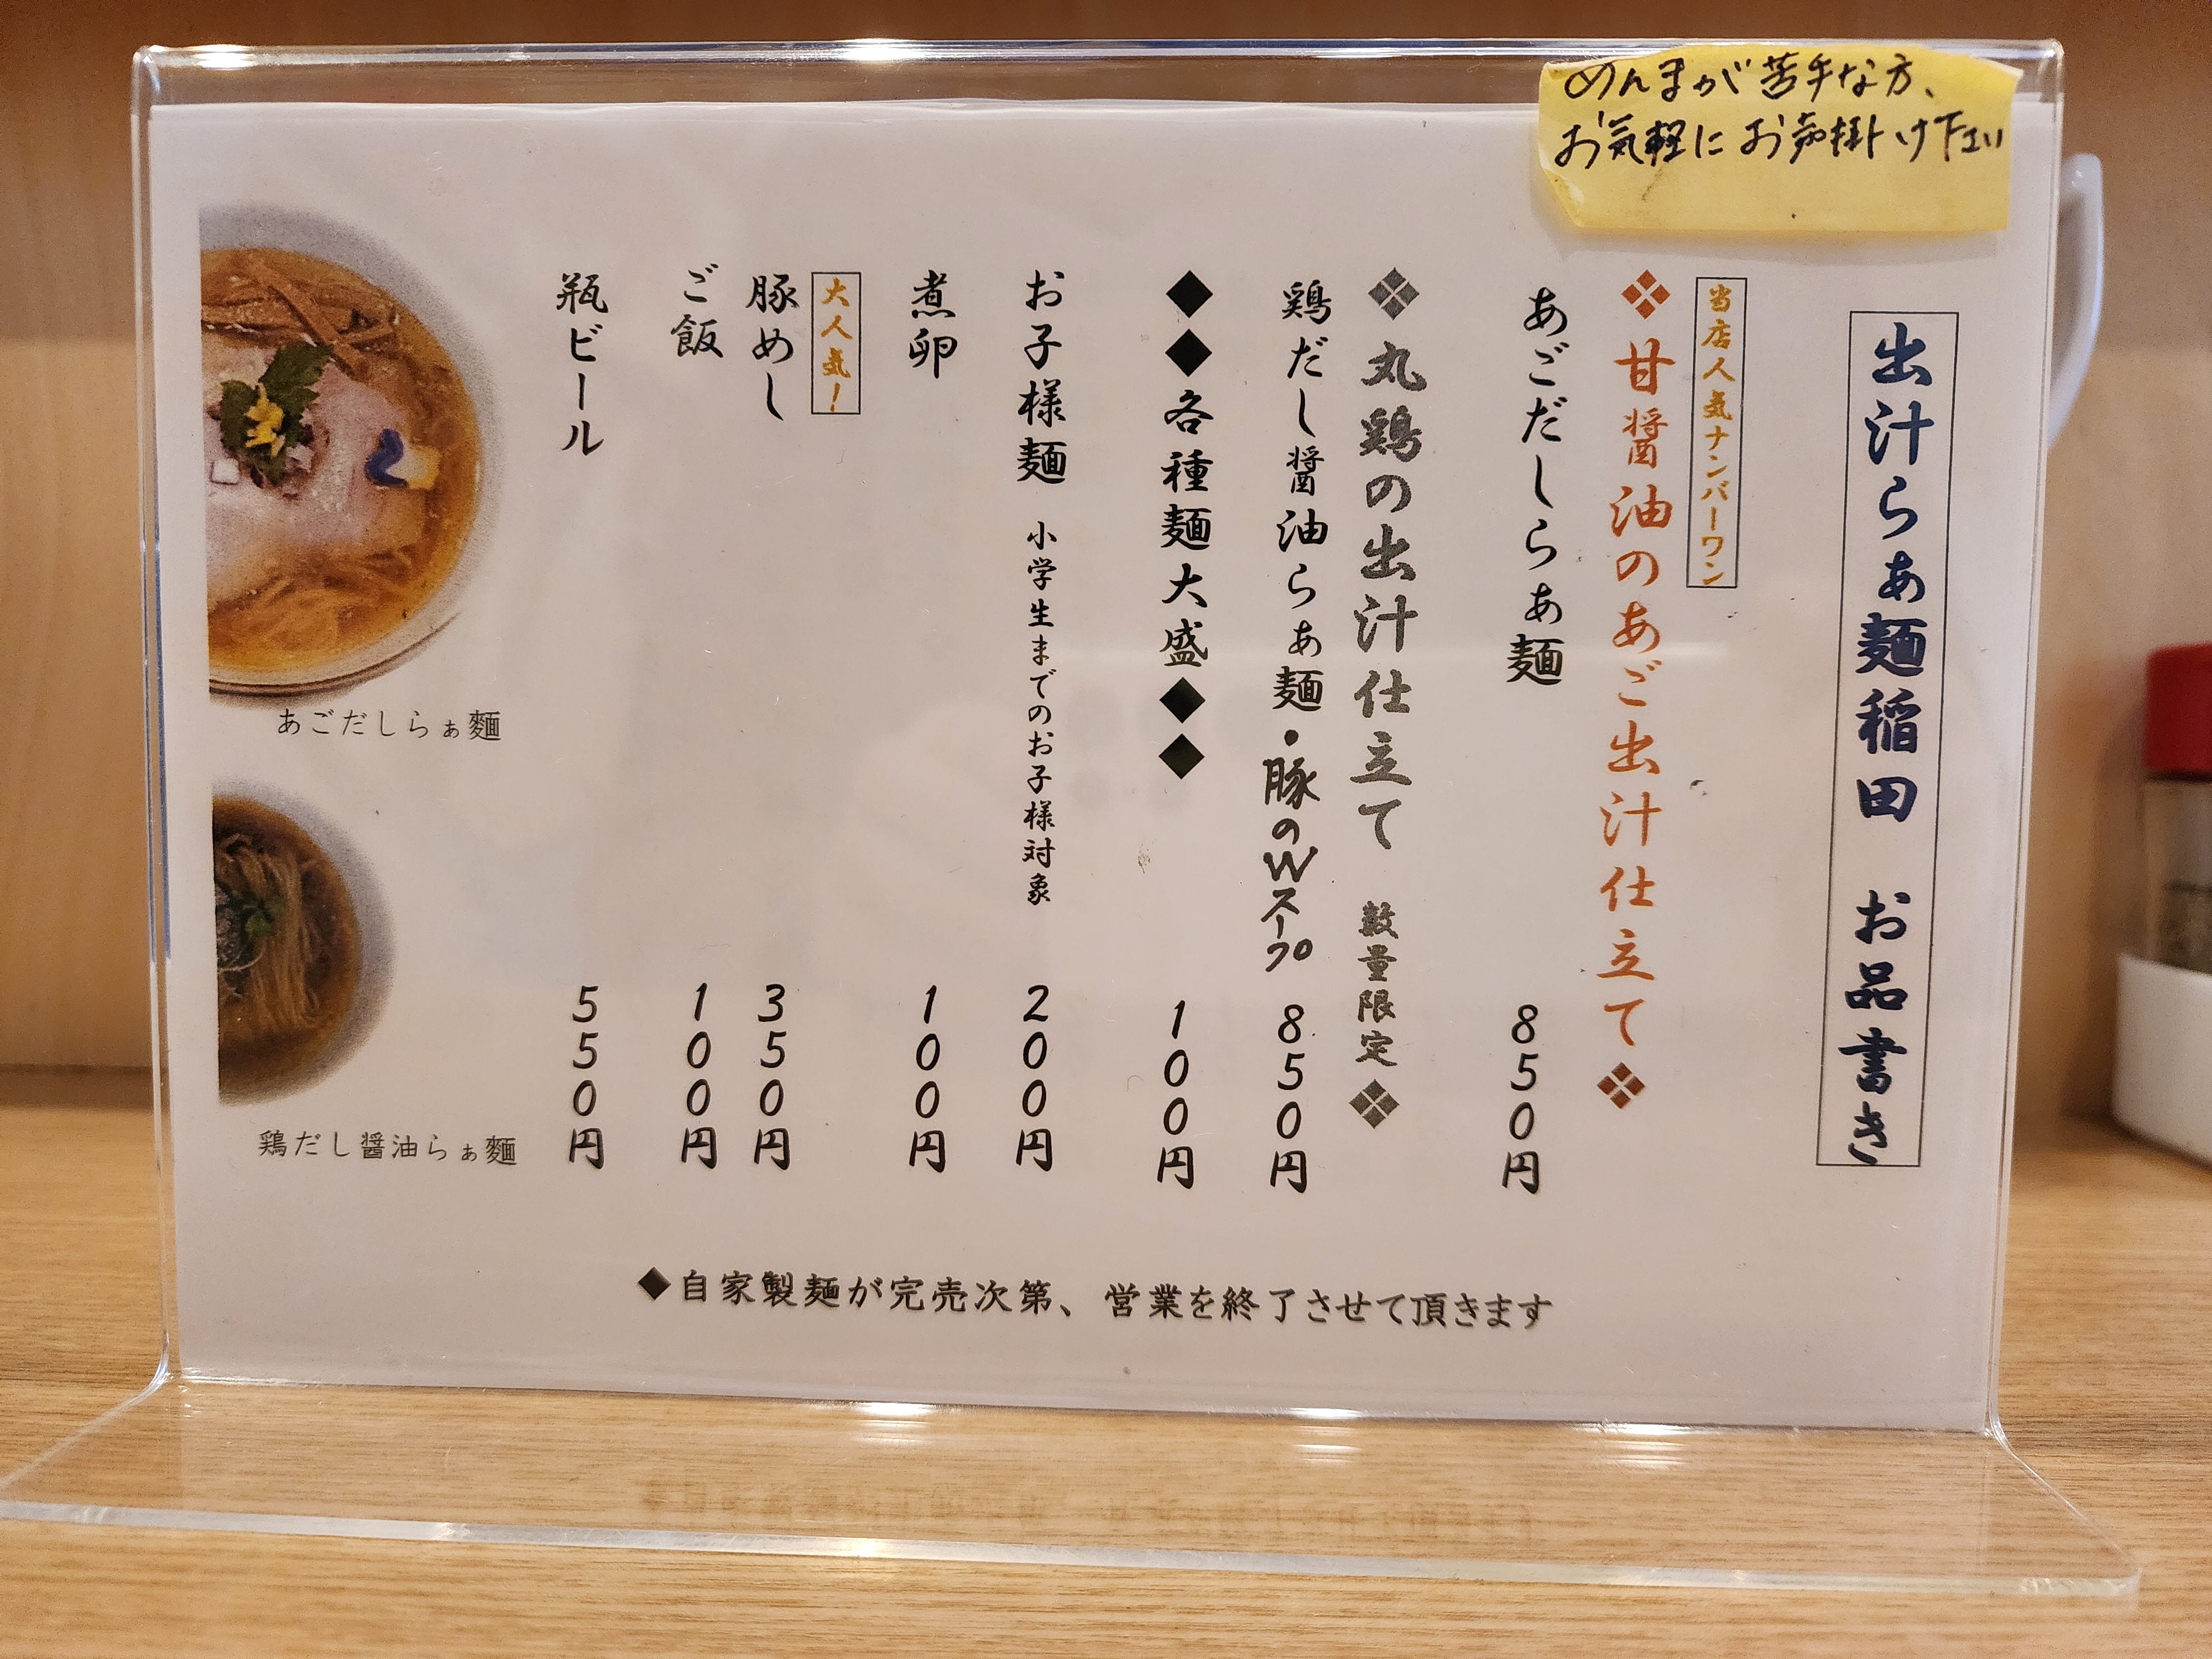 めんまが苦手な方、
お気軽にお声掛け下さい
出汁らぁ麺稲田 お品書き
当店人気ナンバーワン
❖甘醤油のあご出汁仕立て❖
あごだしらぁ麺 850円
❖丸鶏の出汁仕立て 数量限定❖
鶏だし醤油らぁ麺・豚のWスープ 850円
◆◆各種麺大盛◆◆ 100円
お子様麺 小学生までのお子様対象 200円
煮卵 100円
大人気！
豚めし 350円
ご飯 100円
瓶ビール 550円
あごだしらぁ麵
鶏だし醤油らぁ麵
◆自家製麺が完売次第、営業を終了させて頂きます